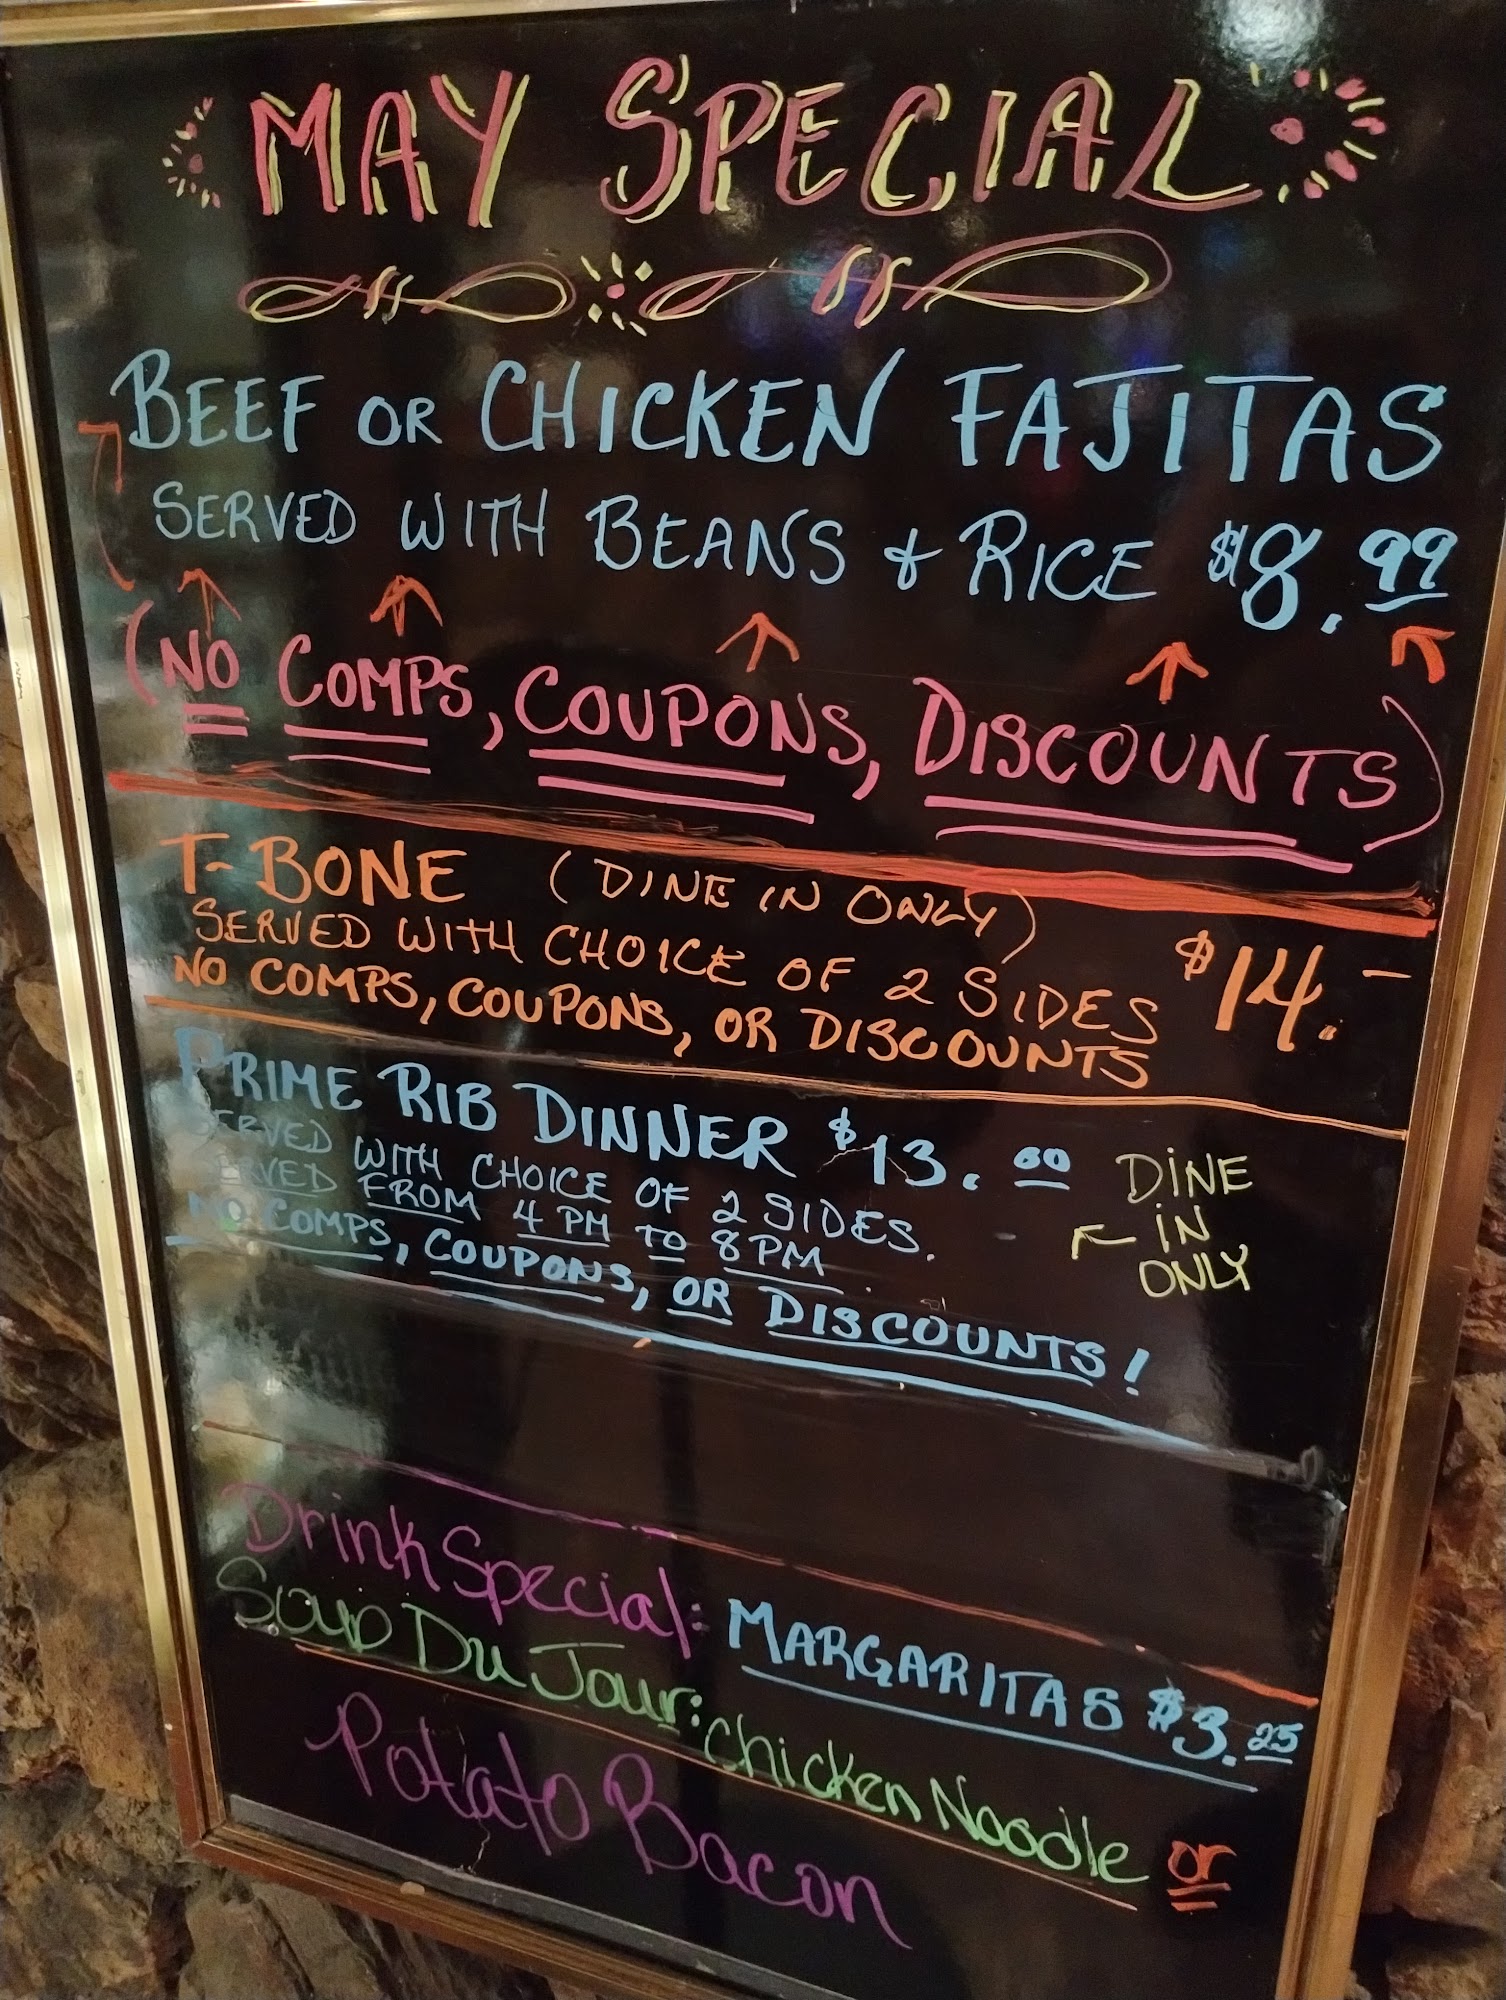 MAY SPECIAL
BEEF OR CHICKEN FAJITAS
SERVED WITH BEANS & RICE $8.99
(NO COMPS, COUPONS, DISCOUNTS)
T-BONE (DINE IN ONLY)
SERVED WITH CHOICE OF 2 SIDES $14.-
NO COMPS, COUPONS, OR DISCOUNTS
PRIME RIB DINNER $13.00
SERVED WITH CHOICE OF 2 SIDES.
SERVED FROM 4 PM TO 8 PM
NO COMPS, COUPONS, OR DISCOUNTS!
DINE
IN
ONLY
Drink Special: MARGARITAS $3.25
Soup Du Jour: Chicken Noodle or
Potato Bacon